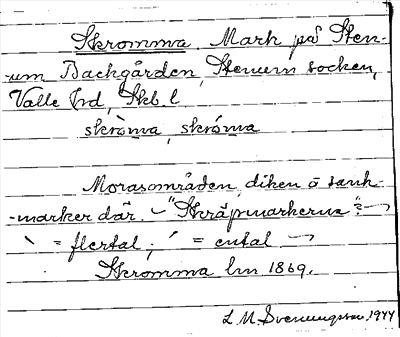 Skromma, Mark på Sten-
-um Backgården, Stenum socken,
Valle hd, Skb. l
skròma, skróma
Morasområden, diken o sank-
-marker där. "Skräpmarkerna"
` = flertal, ´ = ental
Skromma lm 1869.
L.M. Svenungsson, 1944